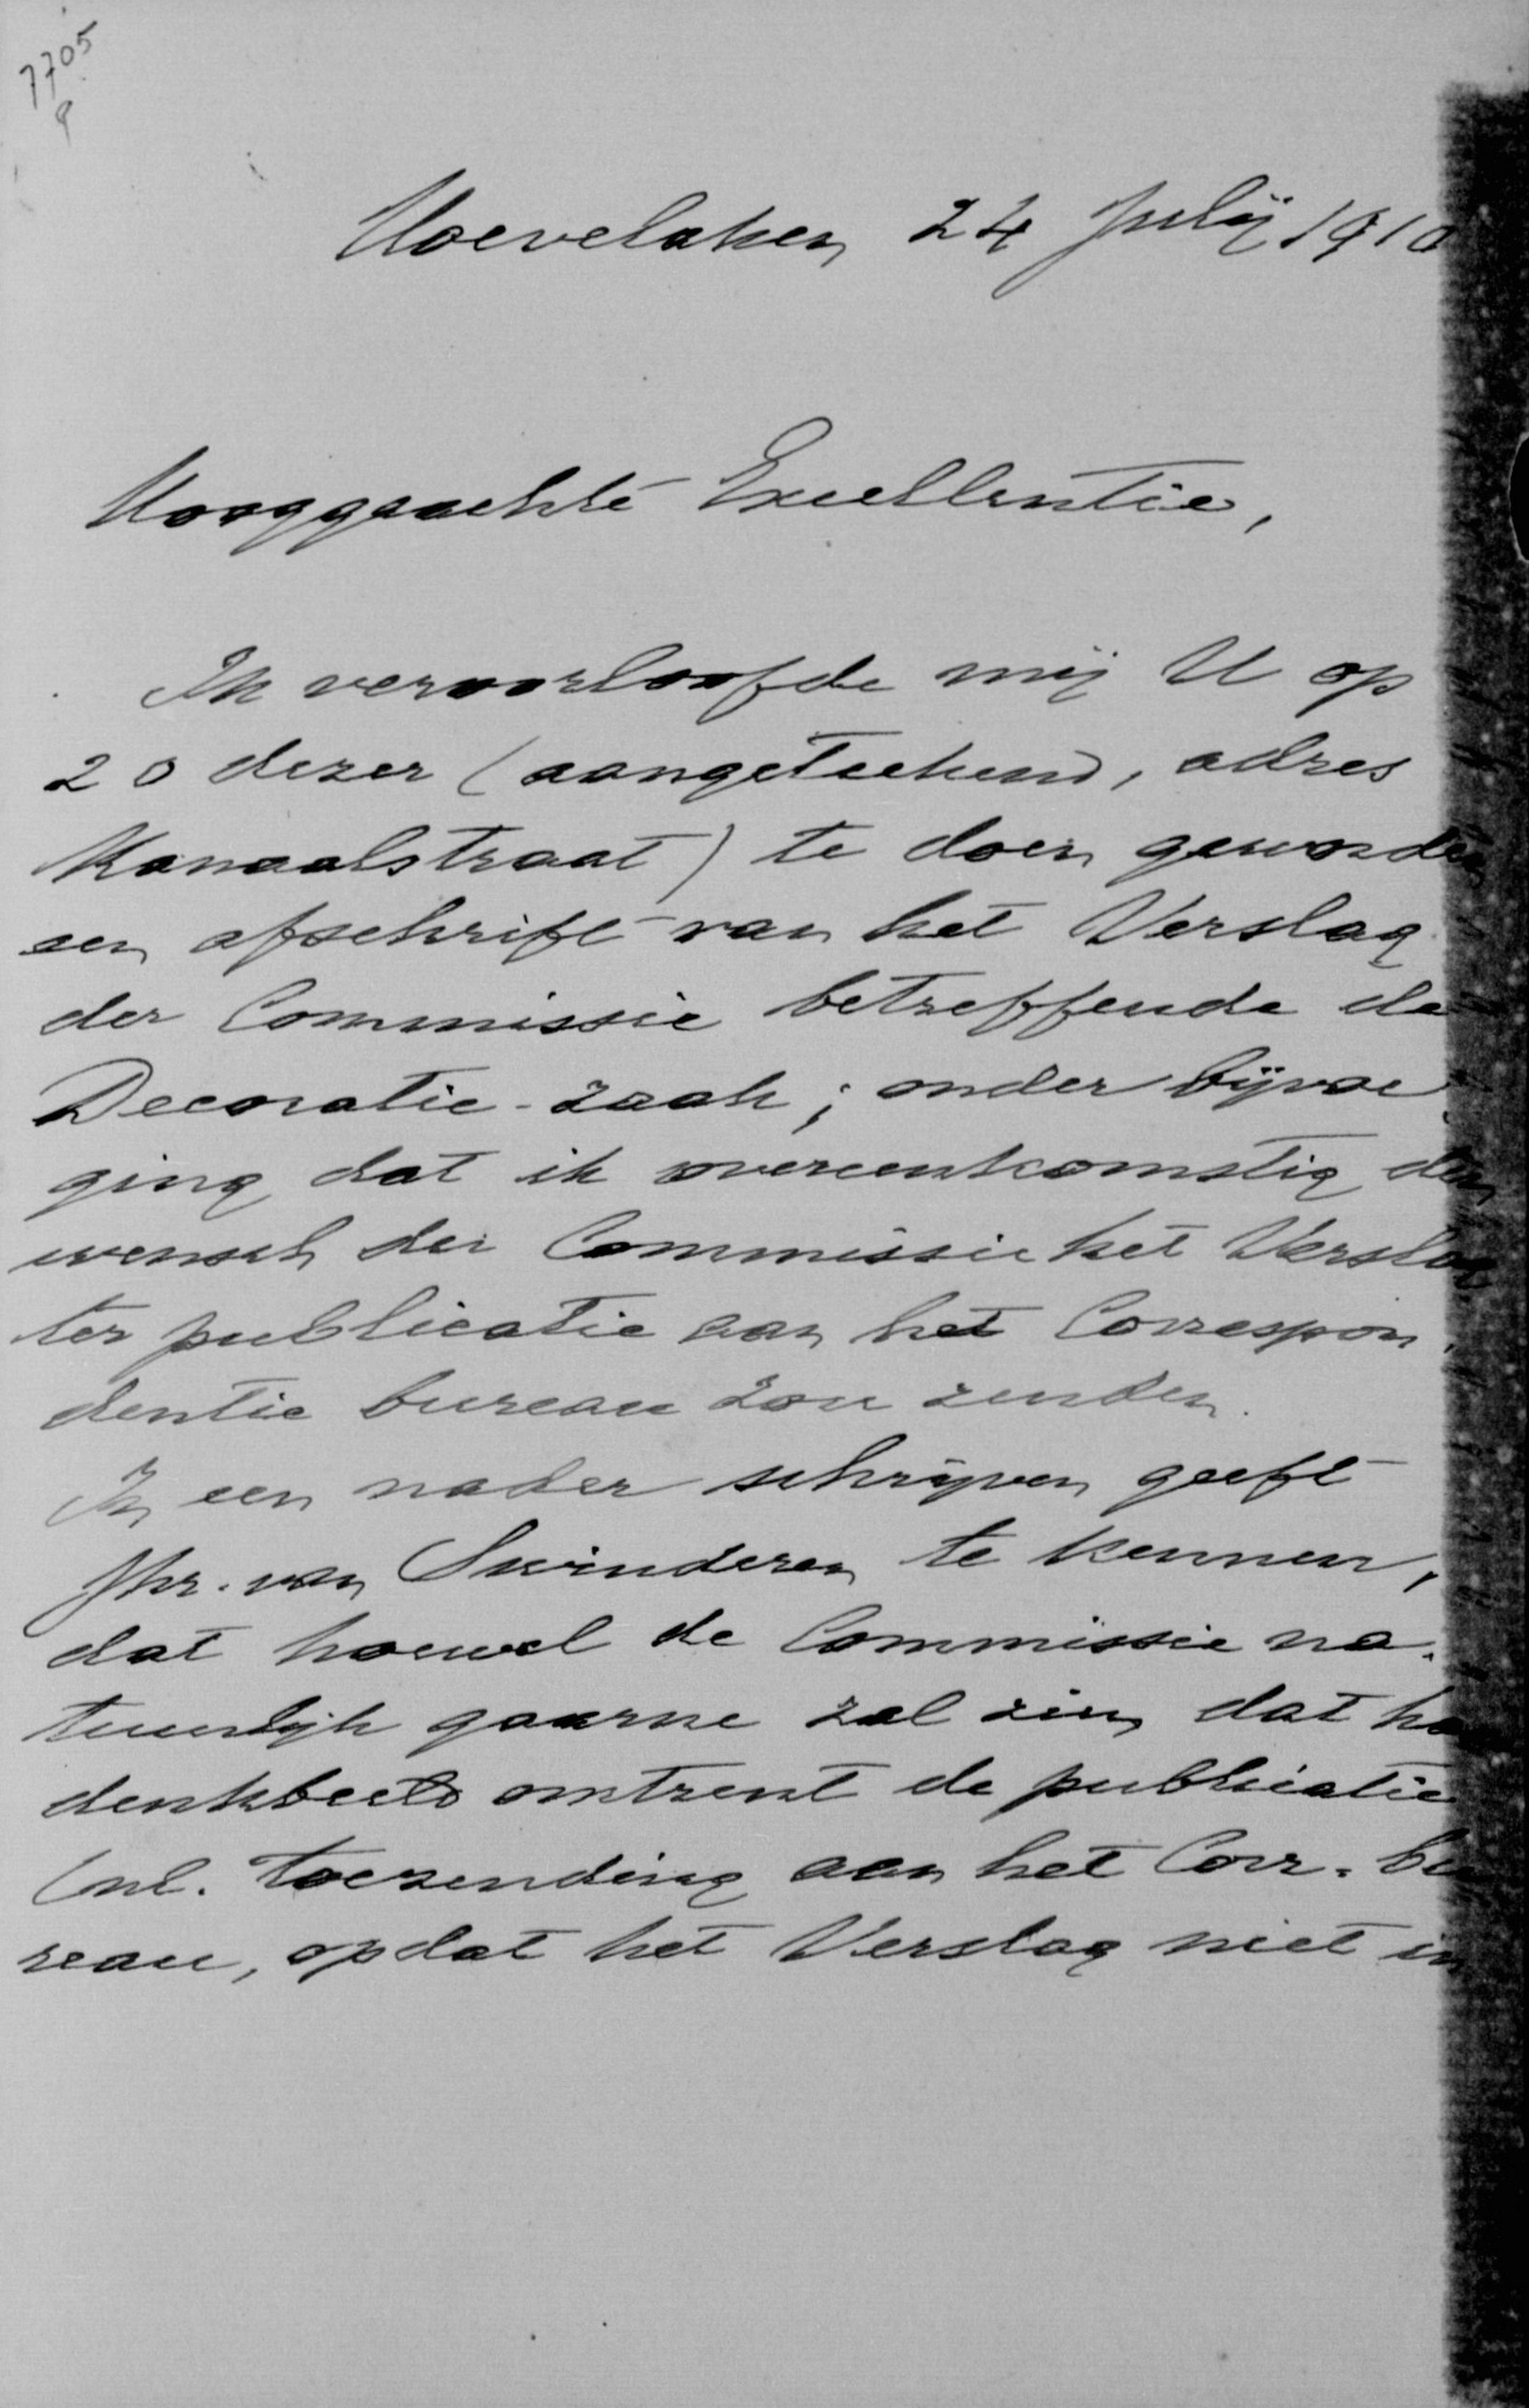 7705
9
Hoevelaken 24 Julij 1910
Hooggeachte Excellentie,
Ik veroorloofde mij U op
20 dezer (aangeteekend, adres
Kanaalstraat) te doen geworden
een afschrift van het Verslag
der Commissie betreffende de
Decoratie-zaak; onder bijvoe
ging dat ik overeenkomstig den
wensch der Commissie het Verslag
ter publicatie aan het Correspon-
dentie bureau zou zenden.
In een nader schrijven geeft
Jhr. van Swinderen te kennen,
dat hoewel de Commissie na-
tuurlijk gaarne zal zien, dat
denkbeeld omtrent de publicatie
(nl. toezending aan het Corr. bu
reau, opdat het Verslag niet in